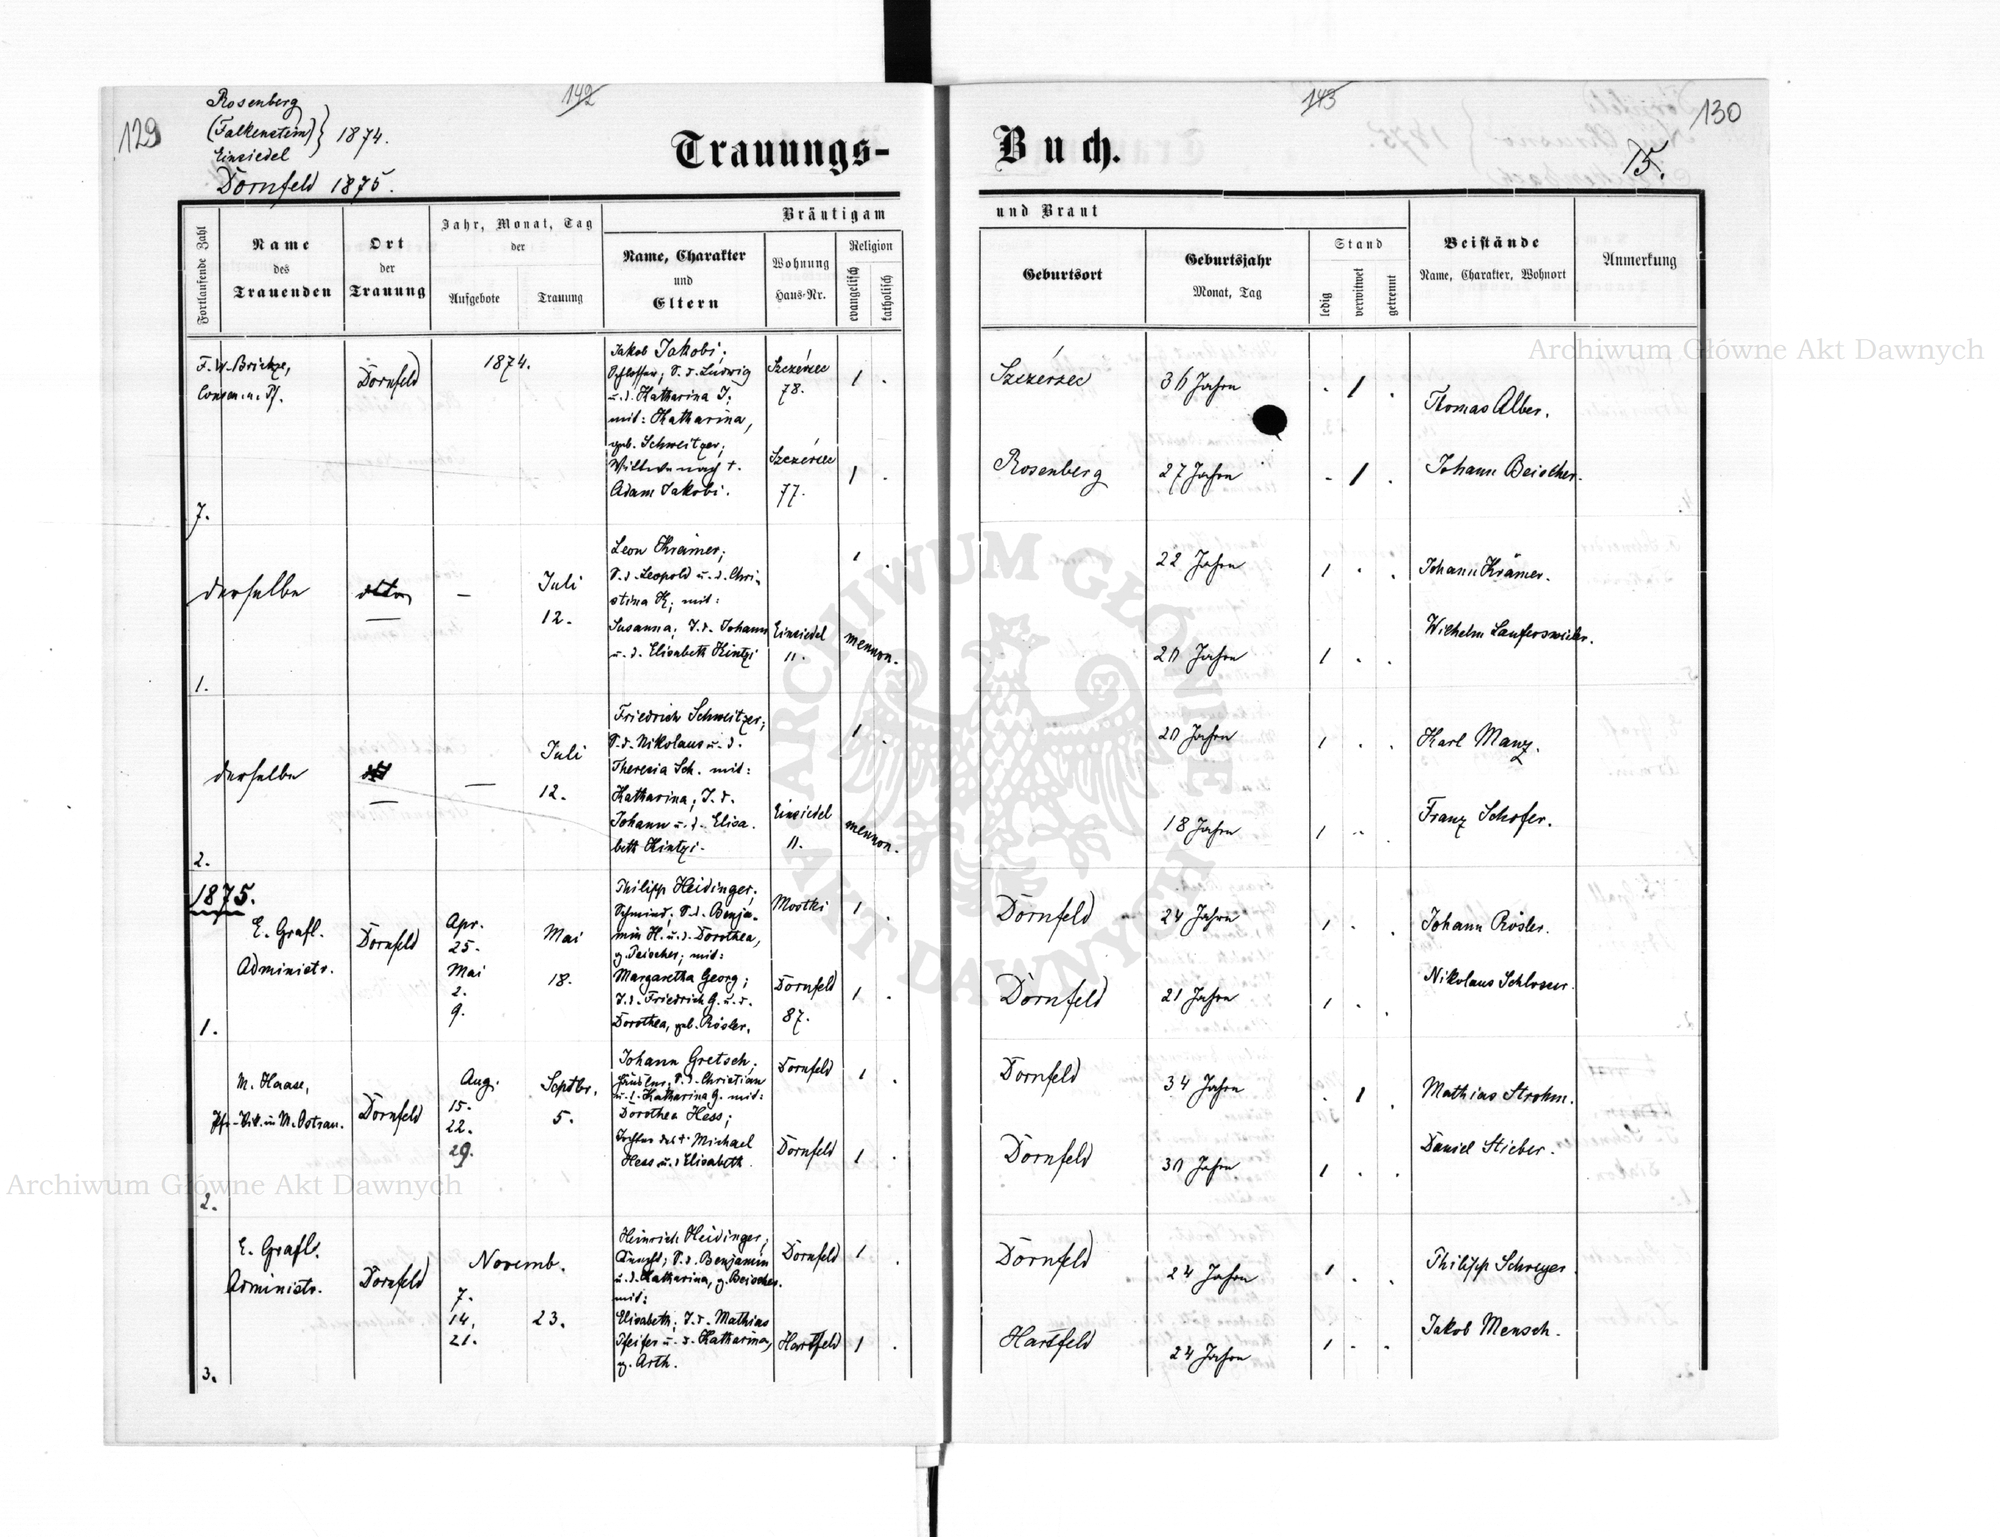 129
Rosenberg
(Falkenstein) } 1874.
Einsiedel
Dornfeld 1875.
142
Trauungs-
Buch.
143
130
15.
Fortlaufende Zahl
Name
des
Trauenden
Ort
der
Trauung
Jahr, Monat, Tag
der
Aufgebote
Trauung
Bräutigam
Name, Charakter
und
Eltern
Wohnung
Haus-Nr.
Religion
evangelisch
katholisch
und Braut
Geburtsort
Geburtsjahr
Monat, Tag
Stand
ledig
verwitwet
getrennt
Beistände
Name, Charakter, Wohnort
Anmerkung
7.
Dornfeld
1874.
Jakob Jakobi;
Schlosser; S. d. Ludwig
u. d. Katharina J.
mit: Katharina,
geb. Schweitzer;
Witwe nach †.
Adam Jakobi.
Szczérzec
78.
1 .
Szczérzec
77.
1 .
Szczérzec
36 Jahre
. 1 .
Thomas Alber.
Rosenberg
27 Jahre
- 1 .
Johann Beischer.
1.
derselbe
dtto
—
Juli
12.
Leon Krämer;
S. d. Leopold u. d. Chri-
stina K; mit:
Susanna; T. d. Johann
u. d. Elisabeth Kintzi
Einsiedel
11.
1 .
mennon.
22 Jahre
1 . .
Johann Krämer.
20 Jahre
1 . .
Wilhelm Laufersweiler.
2.
derselbe
—
Juli
12.
Friedrich Schweitzer;
S. d. Nikolaus u. d.
Theresia Sch. mit:
Katharina; T. d.
Johann u. d. Elisa-
beth Kintzi.
Einsiedel
11.
1 .
mennon.
20 Jahre
1 . .
Karl Manz.
18 Jahre
1 ..
Franz Schofer.
1875.
1.
E. Grafl.
Administr.
Dornfeld
Apr.
25.
Mai
2.
9.
Mai
18.
Philipp Heidinger;
Schmied; S. d. Benja-
min H. u. d. Dorothea,
g. Peischer; mit:
Margaretha Georg;
T. d. Friedrich G. u. d.
Dorothea, geb. Rösler.
Mostki
1 .
Dornfeld
87.
1 .
Dornfeld
24 Jahre
1 . .
Johann Rösler.
Dornfeld
21 Jahre
1 . .
Nikolaus Schlosser.
2.
M. Haase,
Dornfeld
Aug.
15.
22.
29.
Septbr.
5.
Johann Gretsch,
S. d. Christian
u. d. Katharina G. mit:
Dorothea Hess;
Tochter des † Michael
Hess u. d. Elisabeth.
Dornfeld
1 .
Dornfeld
1 .
Dornfeld
34 Jahre
. 1 .
Mathias Strohm.
Dornfeld
30 Jahre
1 . .
Daniel Stieber.
3.
E. Grafl.
Administr.
Dornfeld
Novemb.
7.
14.
21.
23.
Heinrich Heidinger;
Knecht; S. d. Benjamin
u. d. Katharina, g. Beischer.
mit:
Elisabeth; T. d. Mathias
Pfeifer u. d. Katharina,
g. Arth.
Dornfeld
1 .
Hartfeld
1 .
Dornfeld
24 Jahre
1 . .
Philipp Schreyer.
Hartfeld
24 Jahre
1 . .
Jakob Mensch.
Archiwum Główne Akt Dawnych
Archiwum Główne Akt Dawnych
ARCHIWUM GŁÓWNE
AKT DAWNYCH